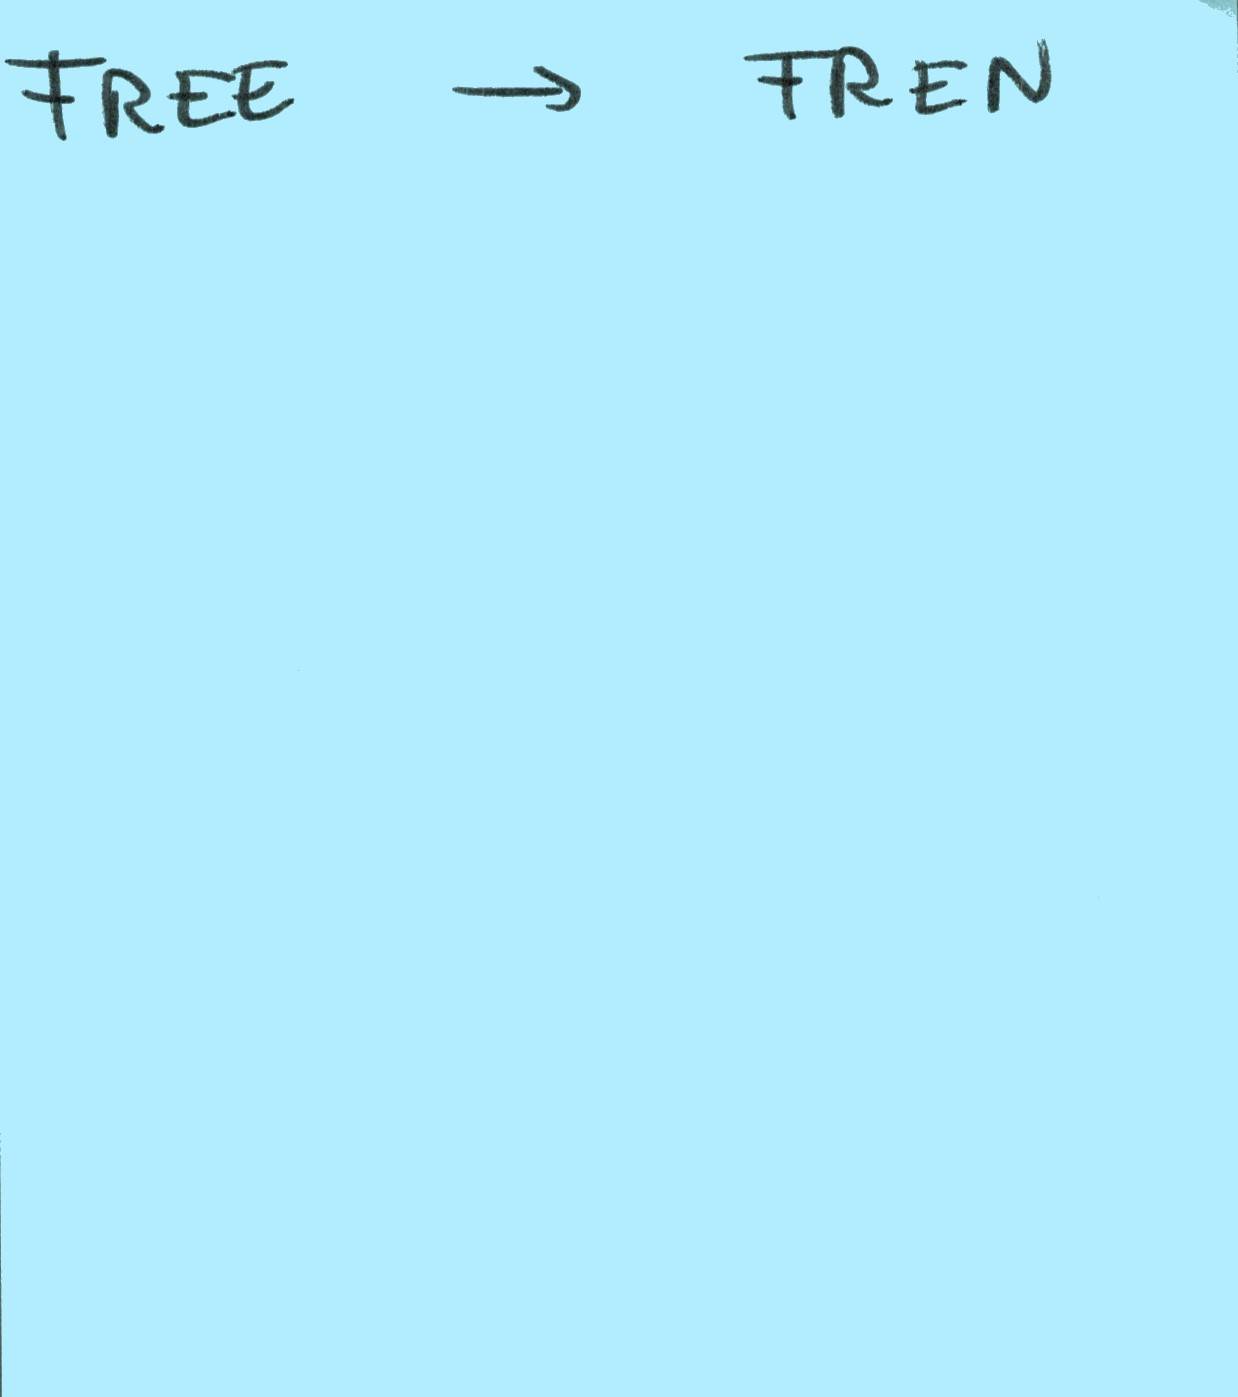 FREE → FREN